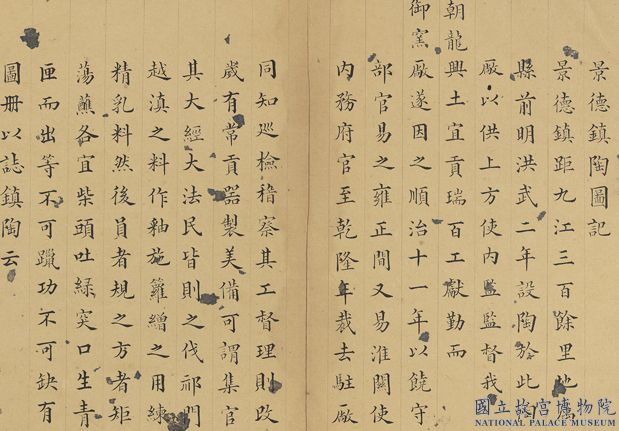 景德鎮陶圖記
景德鎮距九江三百餘里地屬
縣前明洪武二年設陶於此
廠以供上方使內監監督我
朝龍興土宜貢瑞百工獻勤而
御窯廠遂因之順治十一年以饒守
部官易之雍正間又易淮關使
內務府官至乾隆年裁去駐廠
同知巡檢稽察其工督理則改
歲有常貢器製美備可謂集官
其大經大法民皆則之伐祁門
越滇之料作釉施籮繒之用練
精乳料然後員者規之方者矩
蕩蘸各宜柴頭吐綠突口生青
匣而出等不可躐功不可缺有
圖冊以誌鎮陶云
國立故宮博物院
NATIONAL PALACE MUSEUM